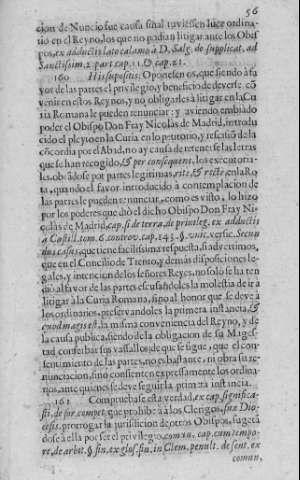 56
cion de Nuncio fue causa final tuviessen luce ordina-
rio en el Reyno, los que no podian litigar ante los Obis-
pos, ex adductis lato calamo à D. Salg. de supplicat. ad
Sanctissim. 2. part. cap. 11. & cap. 21.
160 His suppositis: Oponesenos, que siendo à fa-
vor de las partes el privilegio, y beneficio de deverse cō-
venir en estos Reynos, y no obligarles à litigar en la Cu
ria Romana le pueden renunciar: y aviendo embiado
poder el Obispo Don Fray Nicolàs de Madrid, introdu
cido el pleyto en la Curia en lo petitorio, y rescisiō de la
cōcordia por el Abad, no ay causa de retenerse las letras
que se han recogido, & per consequens, los executoria-
les, obrādose por partes legitimas, ritè, & rectè, en la Ro
ta, quando el favor introducido à contemplacion de
las partes le pueden renunciar, como es visto, lo hizo
por los poderes que diò el dicho Obispo Don Fray Ni
colàs de Madrid, cap. si de terra, de privileg. ex adductis
à Castill. tom. 6. controv. cap. 145. §. unic. versic. Secun
dus casus, que tiene facilissima respuesta, si advertimos,
que en el Concilio de Trento, y demàs disposiciones le-
gales, y intencion de los señores Reyes, no solo se ha ten
ido al favor de las partes escusandoles la molestia de ir à
litigar à la Curia Romana, sino al honor que se deve à
los ordinarios, preservandoles la primera instancia, &
quod magis est, la misma conveniencia del Reyno, y de
la causa publica, siendo de la obligacion de su Mages-
tad conserbar sus vassallos; de que se sigue, que el con-
sentimiento de las partes, no es bastante, ni obra su re-
nunciacion, sino consienten expressamente los ordina-
rios, ante quienes se deve seguir la primera instancia.
161 Compruebase esta verdad, ex cap. significa-
sti, de for. compet. que prohibe à los Clerigos, suæ Dio-
cesis, prorrogar la jurisdicion de otros Obispos, sugetā
dose à ella por ser el privilegio, comun. cap. cum tempo-
re, de arbit. § fin. ex glos. fin. in Clem. penult. de sent. ex
comun,